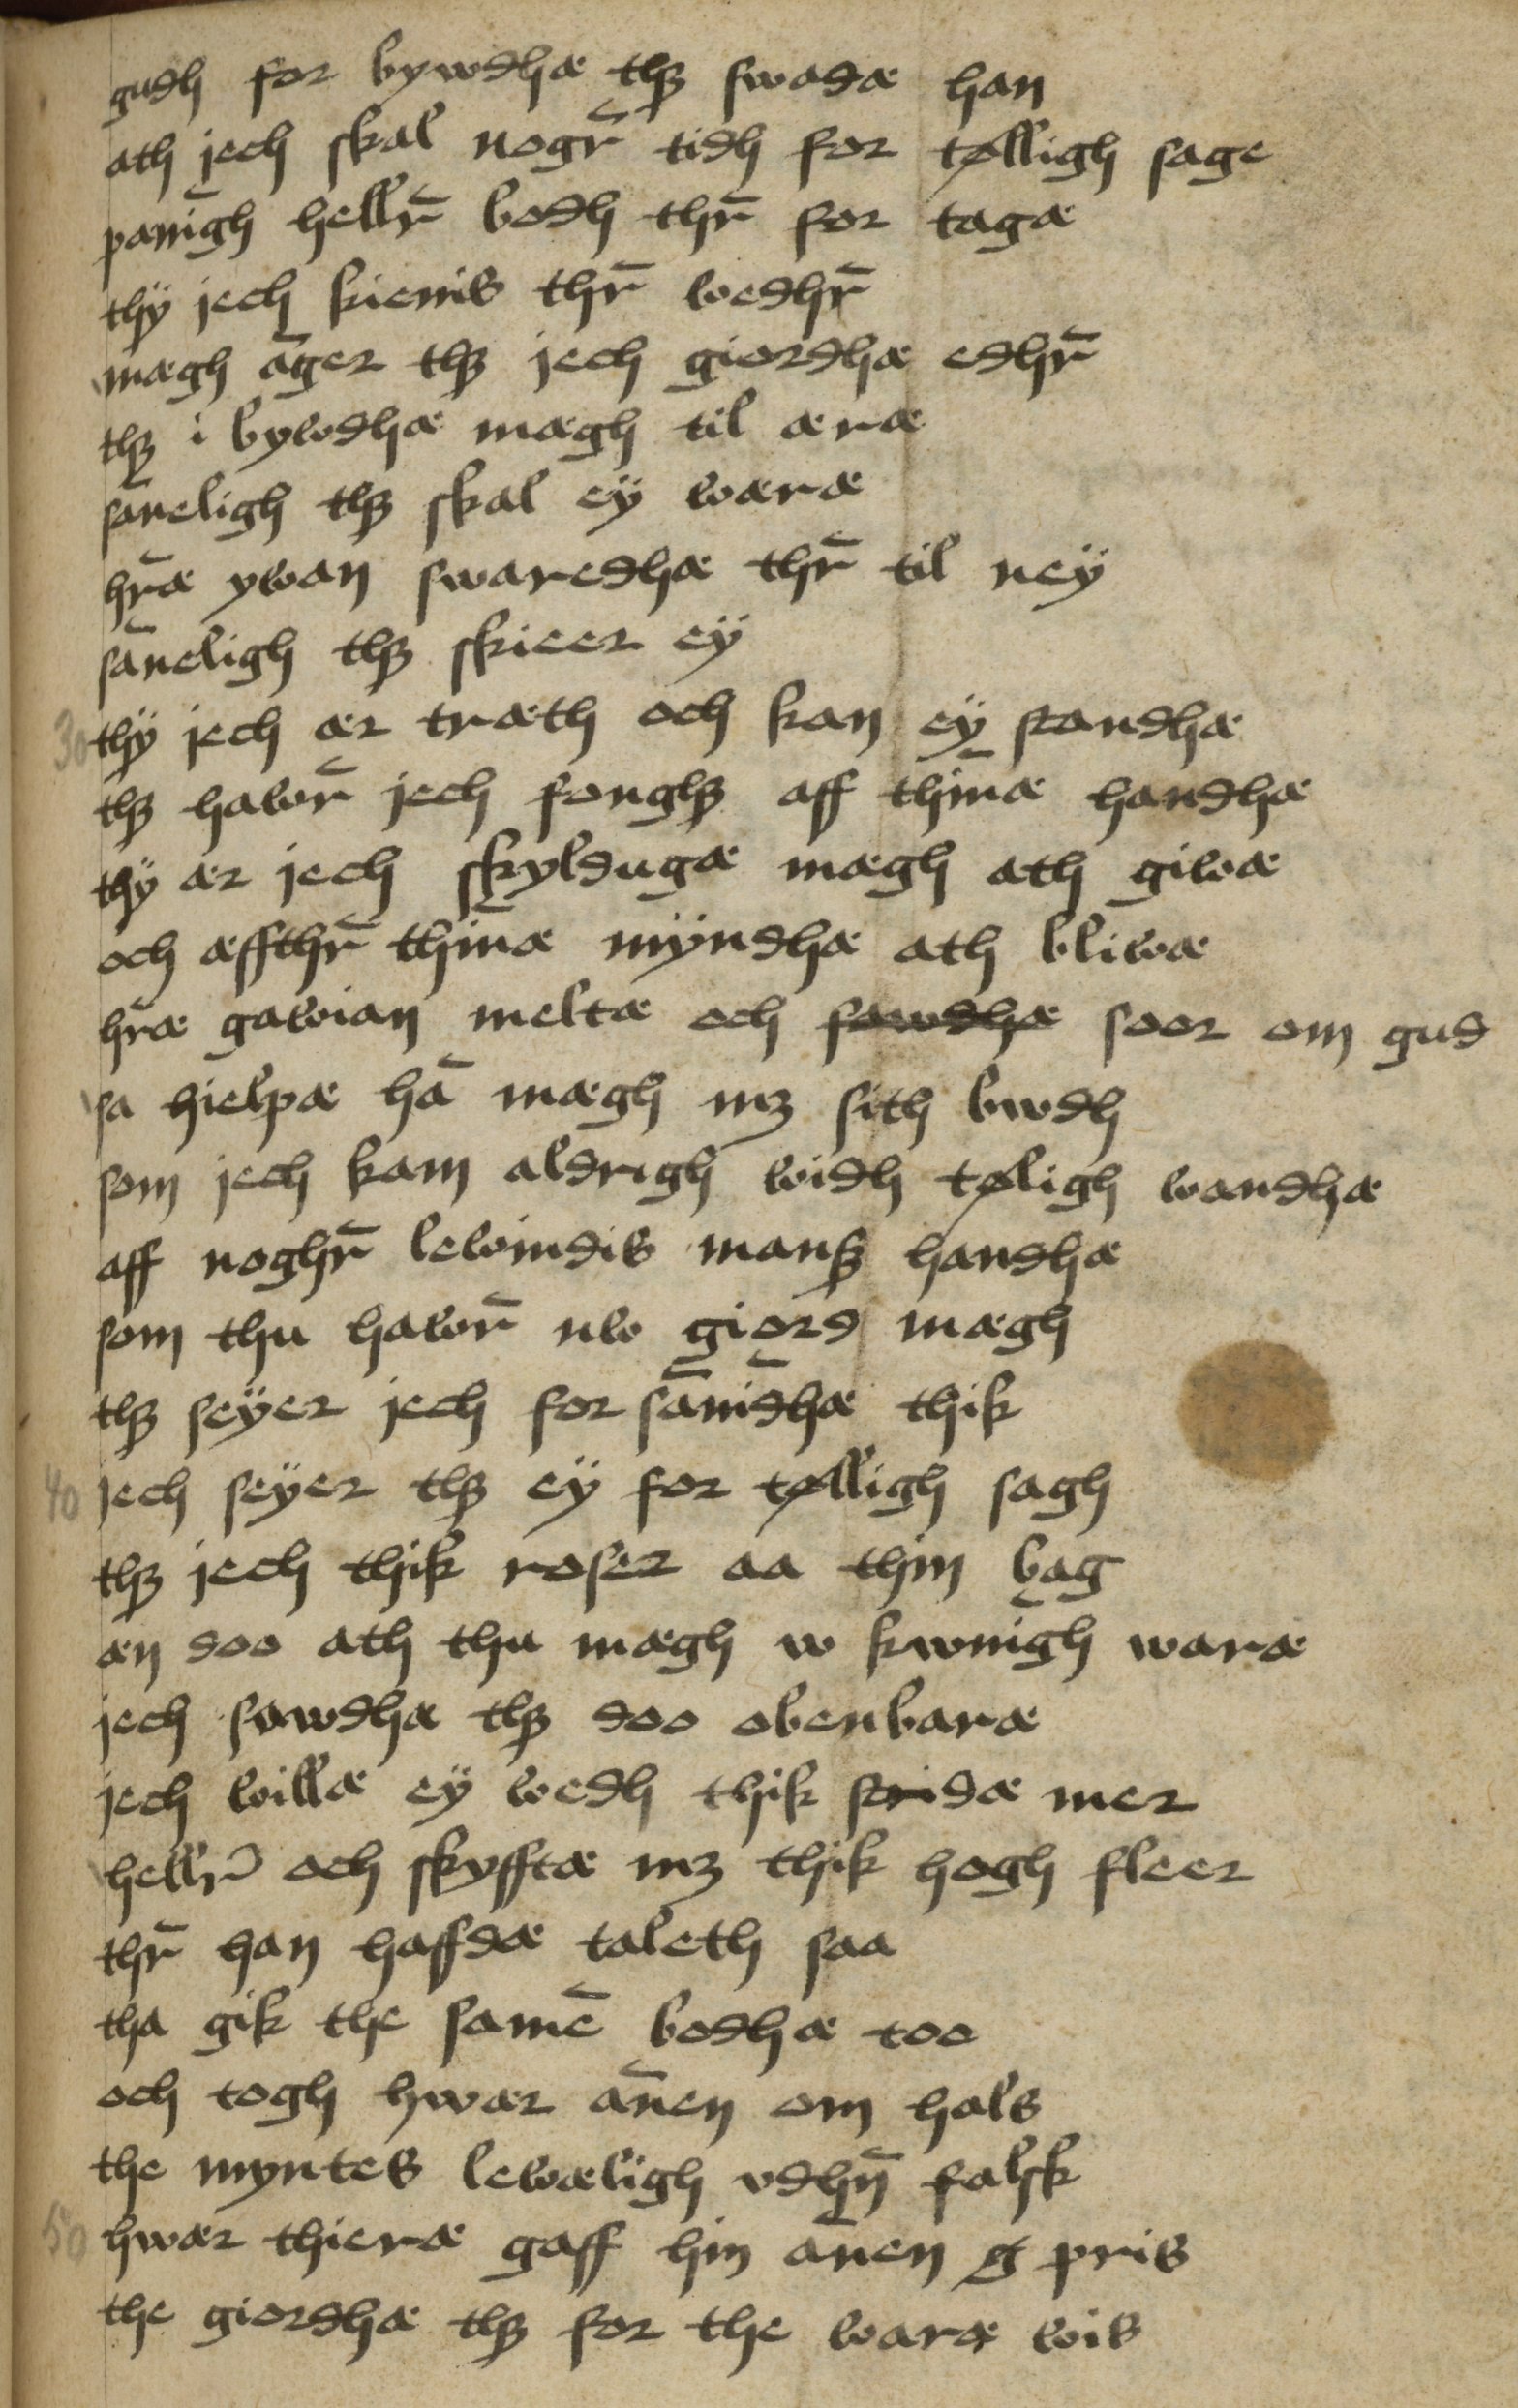 gudh for bywdhæ thꝫ swadæ han
ath jech skal nogr̄ tidh for tølligh sage
pānigh hellr̄ bodh thr̄ for tagæ
thÿ jech kiēnis thr̄ wedhr̄
mægh āger thꝫ jech giordhæ edhr̄
thꝫ i bywdhæ mægh til æræ
sāneligh thꝫ skal eÿ wæræ
hr̄æ ywan swaredhæ thr̄ til neÿ
sāneligh thꝫ skieer eÿ
30 thÿ jech ær træth och kan eÿ standhæ
thꝫ hawr̄ jech fongthꝫ aff thīnæ handhæ
thÿ ær jech skyldugæ mægh ath giwæ
och æffthr̄ thīnæ mÿndhæ ath bliwæ
hr̄æ gawian meltæ och sawdhæ soor om gud
sa hielpæ hā mægh mꝫ sith bwdh
som jech kam aldrigh widh tøligh wandhæ
aff noghr̄ lewindis manꝫ handhæ
som thu hawr̄ nw giord mægh
thꝫ seÿer jech for sānīdhæ thik
40 jech seÿer thꝫ eÿ for tølligh sagh
thꝫ jech thik roser aa thin bag
æn doo ath thu mægh w kwnīgh waræ
jech sawdhæ thꝫ doo obenbaræ
jech willæ eÿ wedh thik stridæ mer
hellr̄ och skyfftæ mꝫ thik hogh fleer
thr̄ han haffdæ taleth saa
tha gik the samē bodhæ too
och togh hwær ānen om hals
the myntes lewæligh vdhn̄ falsk
50 hwær thieræ gaff hin ānen g pris
the giordhæ thꝫ for the waræ wis